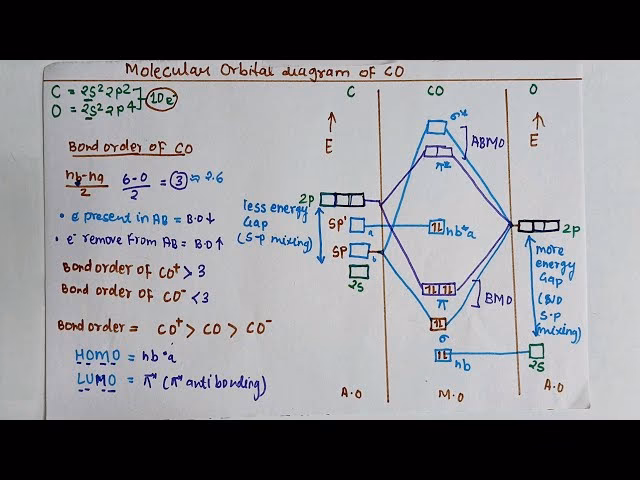 Molecular Orbital diagram of CO
C = 2S² 2P2
O = 2S² 2P4
10e⁻
Bond order of CO
nb-na/2 6-0/2 = 3 ⇋ 2.6
• e⁻ present in AB = B.O↓
• e⁻ remove From AB = B.O↑
Bond order of CO⁺ > 3
Bond order of CO⁻ < 3
Bond order = CO⁺ > CO > CO⁻
HOMO = nb*a
LUMO = π* (π* anti bonding)
C
↑
E
2P
SP'
a
SP
b
2S
less energy
Gap
(S-P mixing)
A.O
CO
σ*
ABMO
π*
nb*a
π
BMO
σ
nb
M.O
O
↑
E
2P
more
energy
Gap
(NO
S-P
mixing)
2S
A.O